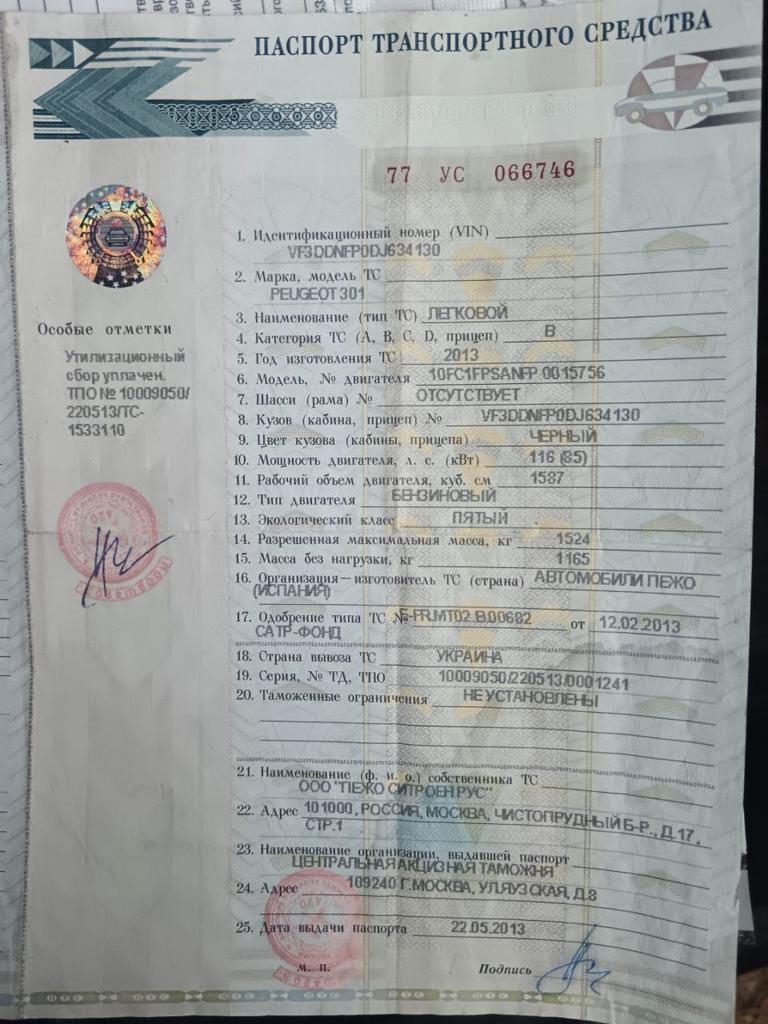 ПАСПОРТ ТРАНСПОРТНОГО СРЕДСТВА
77 УС 066746
1. Идентификационный номер (VIN)
VF3DDNFP0DJ634130
2. Марка, модель ТС
PEUGEOT 301
3. Наименование (тип ТС) ЛЕГКОВОЙ
4. Категория ТС (А, В, С, D, прицеп) В
5. Год изготовления ТС 2013
6. Модель, № двигателя 10FC1FPSANFP 0015756
7. Шасси (рама) № ОТСУТСТВУЕТ
8. Кузов (кабина, прицеп) № VF3DDNFP0DJ634130
9. Цвет кузова (кабины, прицепа) ЧЕРНЫЙ
10. Мощность двигателя, л. с. (кВт) 116 (85)
11. Рабочий объем двигателя, куб. см 1587
12. Тип двигателя БЕНЗИНОВЫЙ
13. Экологический класс ПЯТЫЙ
14. Разрешенная максимальная масса, кг 1524
15. Масса без нагрузки, кг 1165
16. Организация—изготовитель ТС (страна) АВТОМОБИЛИ ПЕЖО
(ИСПАНИЯ)
17. Одобрение типа ТС № E-FR.MT02.B.00682 от 12.02.2013
САТР-ФОНД
18. Страна вывоза ТС УКРАИНА
19. Серия, № ТД, ТПО 10009050/220513/0001241
20. Таможенные ограничения НЕ УСТАНОВЛЕНЫ
21. Наименование (ф. и. о.) собственника ТС
ООО "ПЕЖО СИТРОЕН РУС"
22. Адрес 101000, РОССИЯ, МОСКВА, ЧИСТОПРУДНЫЙ Б-Р., Д.17,
СТР.1
23. Наименование организации, выдавшей паспорт
ЦЕНТРАЛЬНАЯ АКЦИЗНАЯ ТАМОЖНЯ
24. Адрес 109240 Г.МОСКВА, УЛ.ЯУЗСКАЯ, Д.8
25. Дата выдачи паспорта 22.05.2013
М. П. Подпись
Особые отметки
Утилизационный
сбор уплачен.
ТПО № 10009050/
220513/ТС-
1533110